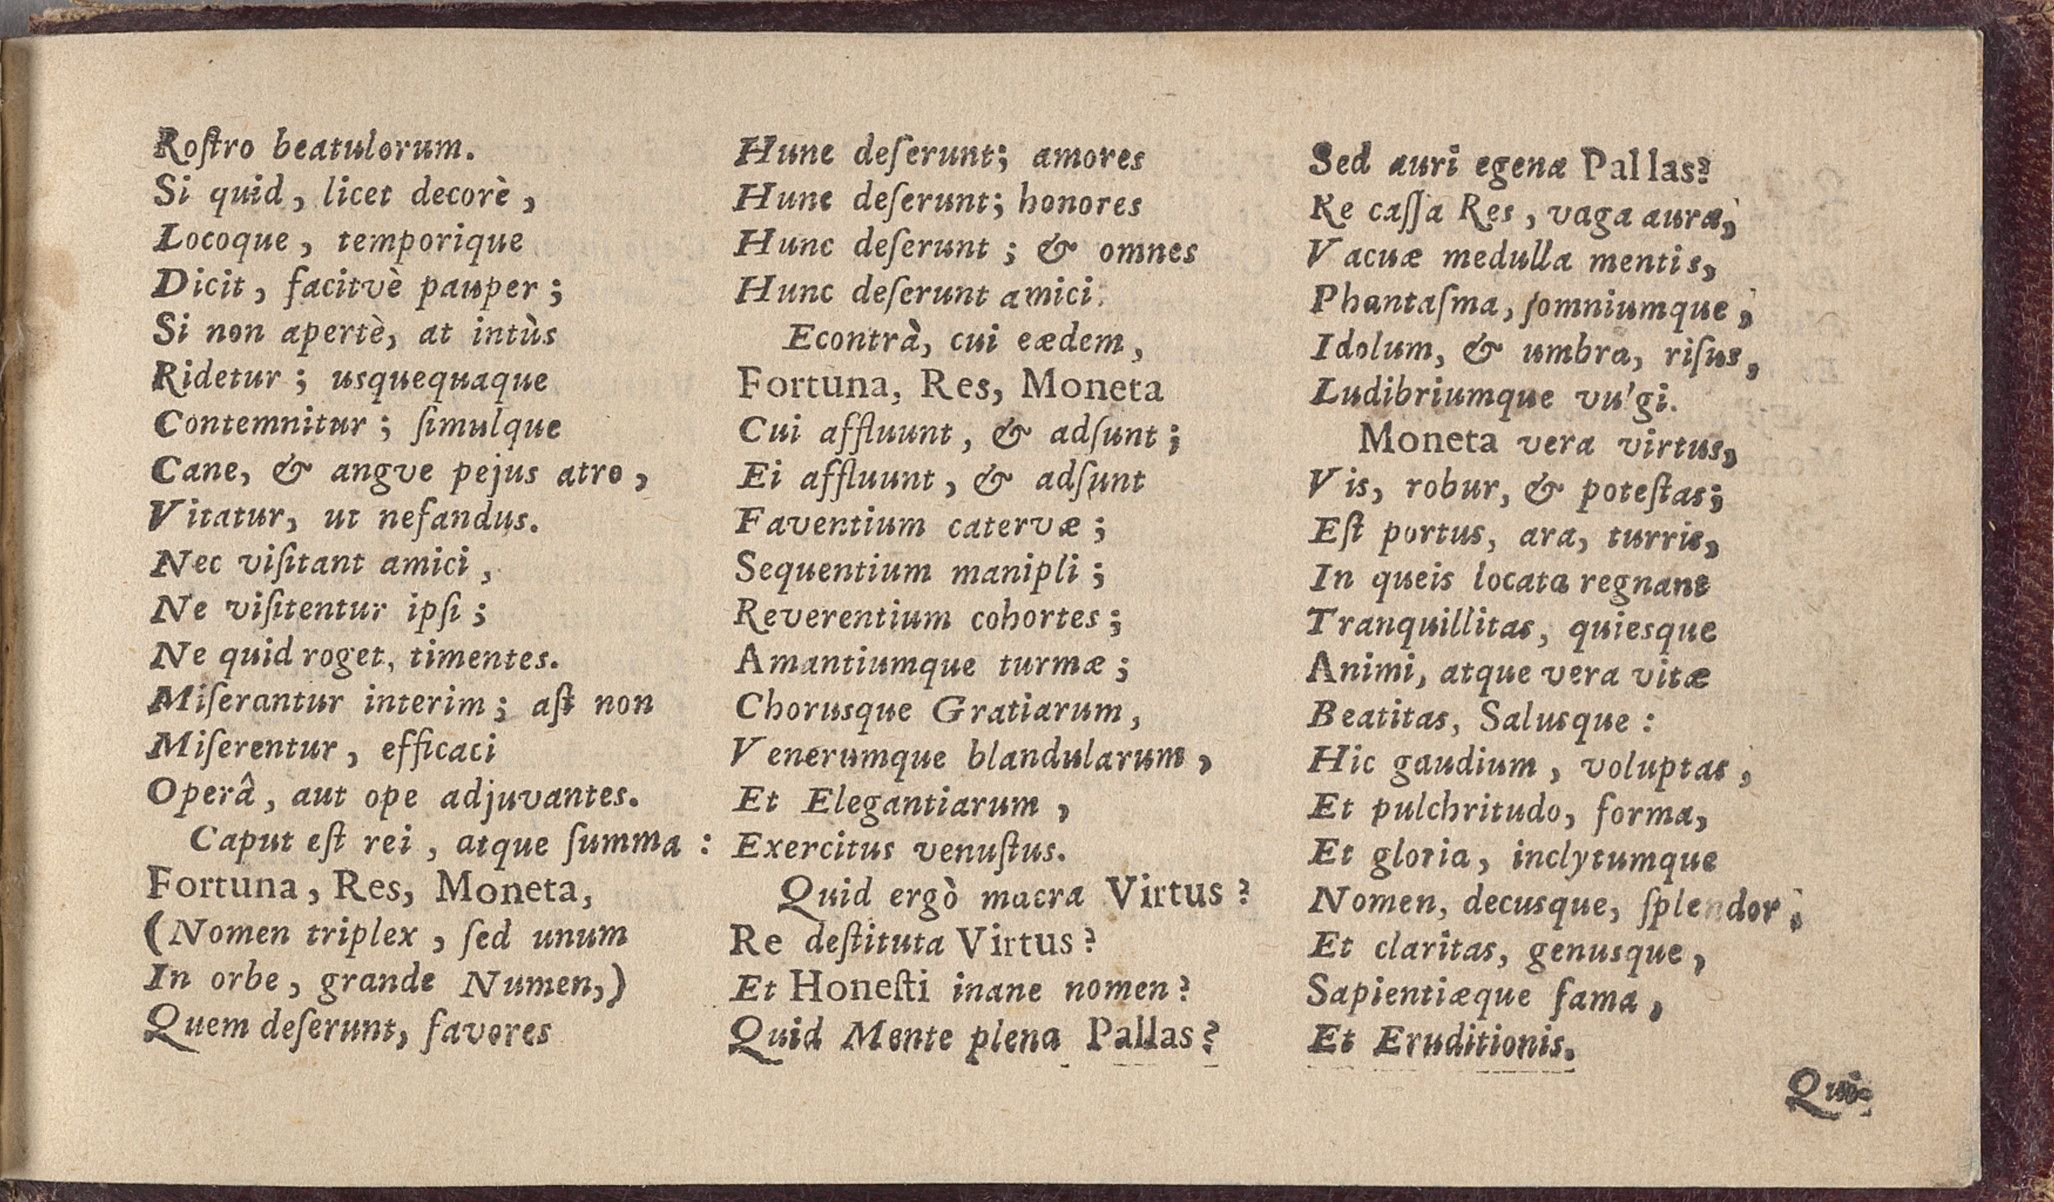 Roſtro beatulorum.
Si quid, licet decorè,
Locoque, temporique
Dicit, facitvè pauper;
Si non apertè, at intùs
Ridetur; usquequaque
Contemnitur; ſimulque
Cane, & angve pejus atro,
Vitatur, ut nefandus.
Nec viſitant amici,
Ne viſitentur ipſi;
Ne quid roget, timentes.
Miſerantur interim; aſt non
Miſerentur, efficaci
Operâ, aut ope adjuvantes.
Caput eſt rei, atque ſumma:
Fortuna, Res, Moneta,
(Nomen triplex, ſed unum
In orbe, grande Numen,)
Quem deſerunt, favores
Hunc deſerunt; amores
Hunc deſerunt; honores
Hunc deſerunt; & omnes
Hunc deſerunt amici.
Econtrà, cui eædem,
Fortuna, Res, Moneta
Cui affluunt, & adſunt;
Ei affluunt, & adſunt
Faventium catervæ;
Sequentium manipli;
Reverentium cohortes;
Amantiumque turmæ;
Chorusque Gratiarum,
Venerumque blandularum,
Et Elegantiarum,
Exercitus venuſtus.
Quid ergò macra Virtus?
Re deſtituta Virtus?
Et Honeſti inane nomen?
Quid Mente plena Pallas?
Sed auri egena Pallas?
Re caſſa Res, vaga aura;
Vacuæ medulla mentis,
Phantaſma, ſomniumque;
Idolum, & umbra, riſus,
Ludibriumque vu'gi.
Moneta vera virtus,
Vis, robur, & poteſtas;
Eſt portus, ara, turris,
In queis locata regnant
Tranquillitas, quiesque
Animi, atque vera vitæ
Beatitas, Salusque:
Hic gaudium, voluptas;
Et pulchritudo, forma,
Et gloria, inclytumque
Nomen, decusque, ſplendor;
Et claritas, genusque,
Sapientiæque fama,
Et Eruditionis.